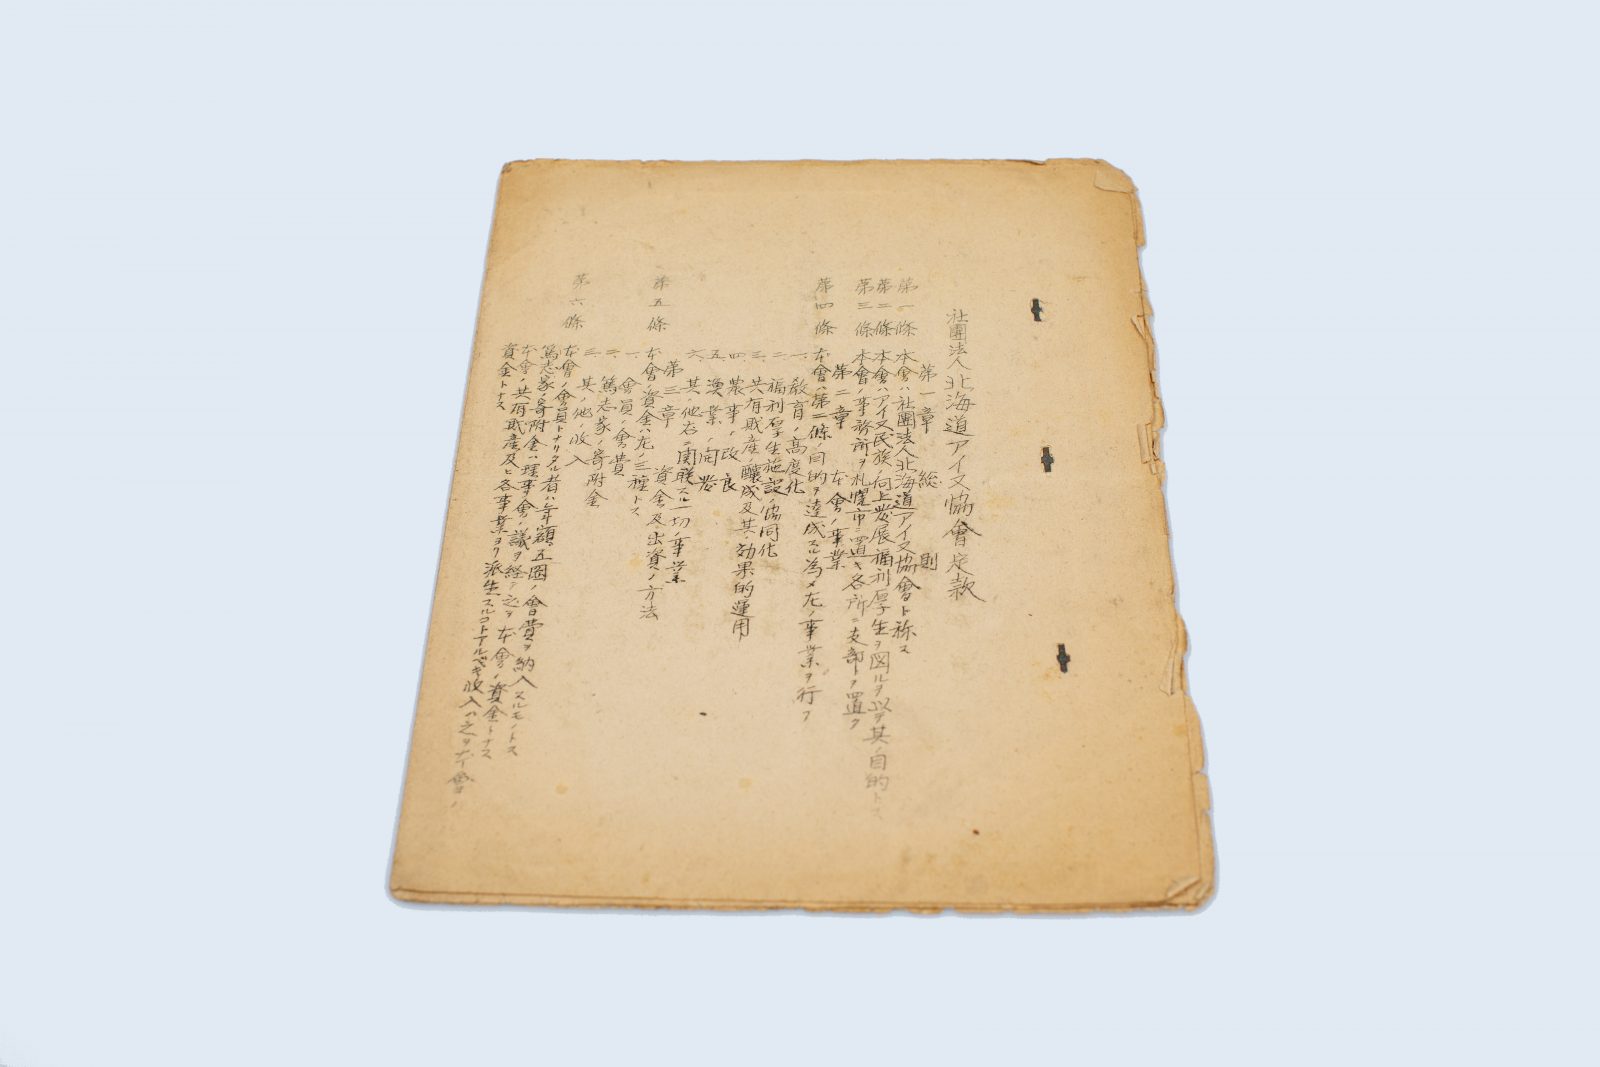 社團法人北海道アイヌ協會定款
第一章　総　則
第一條　本會ハ社團法人北海道アイヌ協會ト称ス
第二條　本會ハアイヌ民族ノ向上発展福利厚生ヲ図ルヲ以テ其ノ目的トス
第三條　本會ノ事務所ヲ札幌市ニ置キ各所ニ支部ヲ置ク
第二章　本會ノ事業
第四條　本會ハ第二條ノ目的ヲ達成スル為メ左ノ事業ヲ行フ
一、教育ノ高度化
二、福利厚生施設ノ協同化
三、共有財産ノ醸成及其ノ効果的運用
四、農事ノ改良
五、漁業ノ開発
六、其ノ他右ニ関聯スル一切ノ事業
第三章　資金及出資ノ方法
第五條　本會ノ資金ハ左ノ三種トス
一、會員ノ會費
二、篤志家ノ寄附金
三、其ノ他ノ収入
第六條　本會ノ會員トナリタル者ハ年額五圓ノ會費ヲ納入スルモノトス
篤志家ノ寄附金ハ理事會ノ議ヲ経テ之ヲ本會ノ資金トナス
本會ノ共有財産及ヒ各事業ヨリ派生スルコトアルベキ収入ハ之ヲ本會ノ
資金トナス